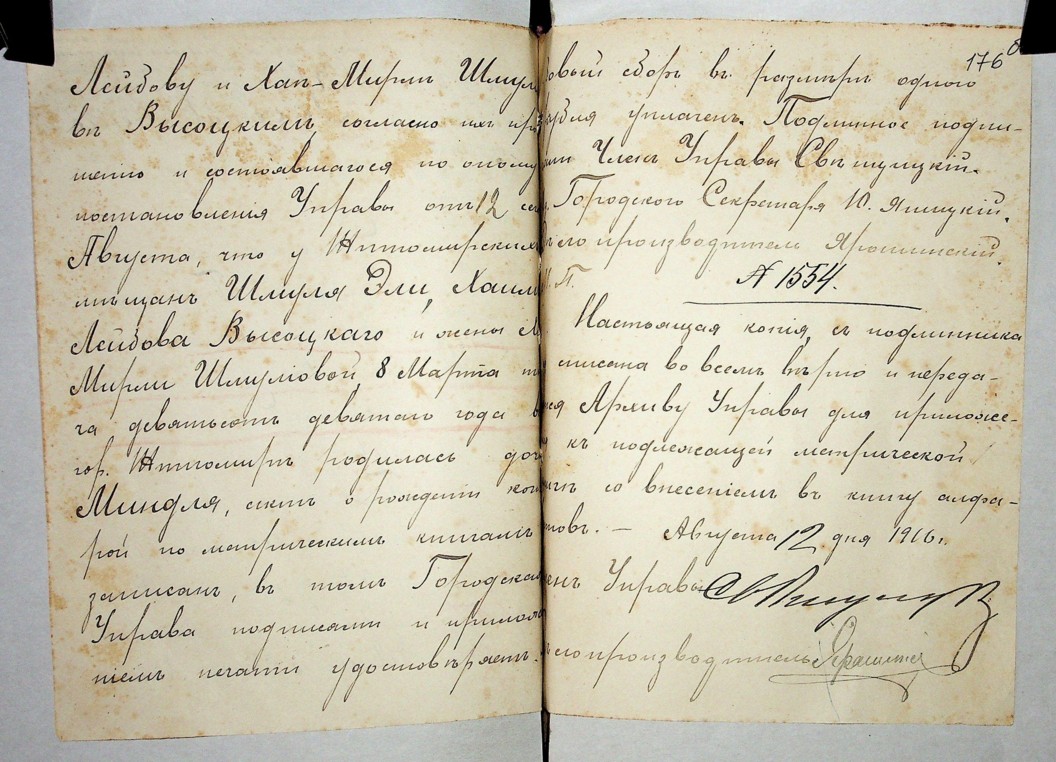 Лейбову и Хап-Мирли Шмул
въ Высоцкимъ, согласно ихъ про
шенію и состоявшагося по оному
постановленія Управы отъ 12 сего
Августа, что у Житомирскихъ
мѣщанъ Шмуля Эли, Хаима
Лейбова Высоцкаго и жены
Мирли Шмулювой, 8 Марта
ча девятьсотъ девятаго года въ
гор. Житомирѣ родилась доч
Миндля, актъ о рожденіи кото
рой по метрическимъ книгамъ
записанъ, въ томъ Городская
Управа подписами и прилож
ніемъ печати удостовѣряетъ.
176
овый сборъ въ размѣрѣ одного
рубля уплаченъ. Подлинное подпи-
Членъ Управы Свѣтулицкій.
Городского Секретаря Ю. Ятицкій.
Дѣлопроизводитель Ярошинскій.
М. П. № 1554.
Настоящая копія, съ подлинника
списана во всемъ вѣрно и переда-
ся Архиву Управы для приложе-
къ подлежащей метрической
со внесеніемъ въ книгу алфа-
товъ. — Августа 12 дня 1916 г.
Членъ Управы
Дѣлопроизводитель